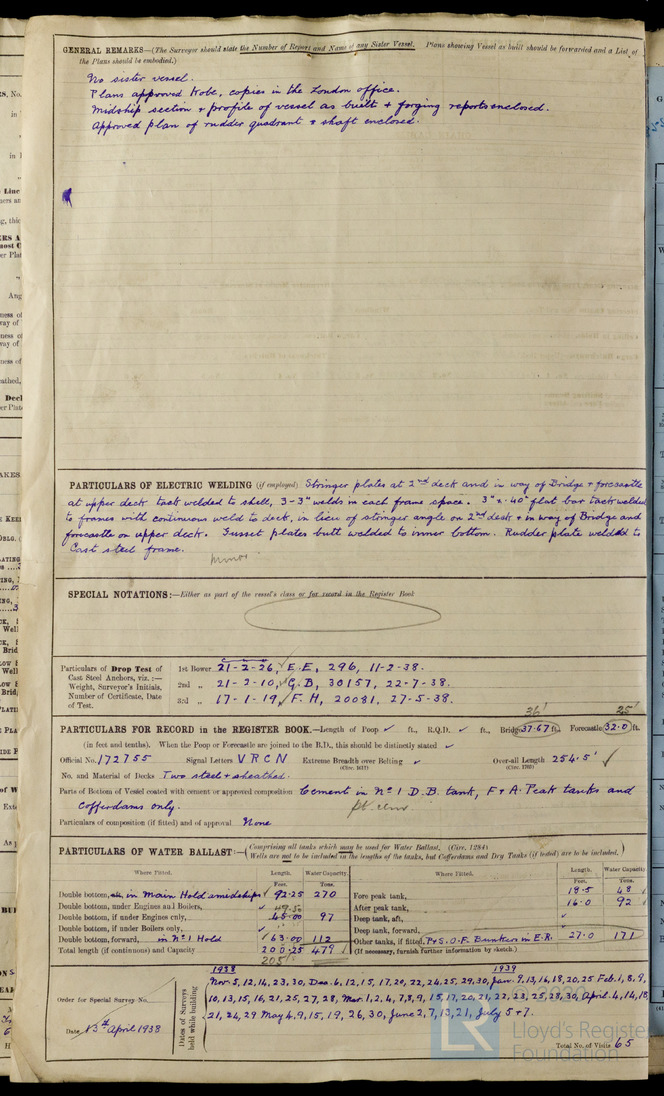 GENERAL REMARKS—(The Surveyor should state the Number of Report and Name of any Sister Vessel. Plans showing Vessel as built should be forwarded and a List of
the Plans should be embodied.)
No sister vessel.
Plans approved Kobe, copies in the London office.
Midship section + profile of vessel as built + forging reports enclosed.
Approved plan of rudder quadrant + shaft enclosed.
PARTICULARS OF ELECTRIC WELDING (if employed) Stringer plates at 2nd deck and in way of Bridge + forecastle
at upper deck tack welded to shell, 3-3" welds in each frame space. 3" x .40" flat bar tack welded
to frames with continuous weld to deck, in lieu of stringer angle on 2nd deck + in way of Bridge and
forecastle on upper deck. Gusset plates butt welded to inner bottom. Rudder plate welded to
Cast steel frame.
minor
SPECIAL NOTATIONS:—Either as part of the vessel's class or for record in the Register Book
Particulars of Drop Test of
Cast Steel Anchors, viz.:—
Weight, Surveyor's Initials,
Number of Certificate, Date
of Test.
1st Bower 21-2-26, E.E, 296, 11-2-38.
2nd „ 21-2-10, G.B, 30157, 22-7-38.
3rd „ 17-1-19, F.H, 20081, 27-5-38.
26' 25'
PARTICULARS FOR RECORD in the REGISTER BOOK.—Length of Poop ✓ ft., R.Q.D. ✓ ft., Bridge 37.67 ft. Forecastle 32.0 ft.
(in feet and tenths). When the Poop or Forecastle are joined to the B.D., this should be distinctly stated ✓
Official No. 172755 Signal Letters VRCN Extreme Breadth over Belting ✓ Over-all Length 254.5'
(Circ. 1617) (Circ. 1703)
No. and Material of Decks Two steel + sheathed.
Parts of Bottom of Vessel coated with cement or approved composition Cement in No 1 D.B. tank, F + A. Peak tanks and
Cofferdams only.
Particulars of composition (if fitted) and of approval None
PARTICULARS OF WATER BALLAST:—(Comprising all tanks which may be used for Water Ballast. (Circ. 1284)
Wells are not to be included in the lengths of the tanks, but Cofferdams and Dry Tanks (if tested) are to be included.)
Where Fitted. Length. Water Capacity. Where Fitted. Length. Water Capacity.
Feet. Tons. Feet. Tons.
Double bottom, in Main Hold amidships ✓ 92.25 270
Double bottom, under Engines and Boilers, ✓
Double bottom, if under Engines only, 45.00 97
Double bottom, if under Boilers only, ✓
Double bottom, forward, in No 1 Hold ✓ 63.00 112
Total length (if continuous) and Capacity 200.25 479
205
Fore peak tank, 18.5 48
After peak tank, 16.0 92
Deep tank, aft, ✓
Deep tank, forward, ✓
Other tanks, if fitted, P+S. O.F. Bunkers in E.R. 27.0 171
(If necessary, furnish further information by sketch.)
Order for Special Survey No.
Date 13th April 1938
Dates of Surveys held while building
1938 1939
Nov. 5, 12, 14, 23, 30, Dec. 6, 12, 15, 17, 20, 22, 24, 25, 29, 30, Jan. 9, 13, 14, 18, 20, 25 Feb. 1, 8, 9,
10, 13, 15, 16, 21, 25, 27, 28, Mar. 1, 2, 4, 7, 8, 9, 15, 17, 20, 21, 22, 23, 25, 28, 30, April. 4, 14, 18,
21, 24, 29 May 4, 9, 15, 19, 26, 30, June 2, 7, 13, 21, July 5 + 7.
Total No. of Visits 65
LR
© 2020
Lloyd's Register
Foundation